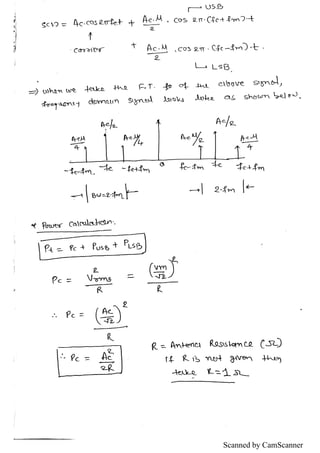 USB
S(t) = Ac.cos2πfct + Ac.M/2 . cos 2π.(fc+fm)t
↑
carrier + Ac.M/2 .cos2π.(fc-fm).t.
LSB.
=> when we take the F.T. of the above signal,
frequency domain signal looks like as shown below.
Ac/2 Ac/2
AcM/4 AcM/4 AcM/4 AcM/4
-fc-fm. -fc -fc+fm 0 fc-fm fc fc+fm
BW=2fm 2.fm
* Power Calculation:
Pt = Pc + PUSB + PLSB
Pc = V²rms/R = (Vm/√2)²/R
∴ Pc = (Ac/√2)²/R
∴ Pc = Ac²/2R
R = Antenna Resistance (Ω)
If R is not given then
take R=1Ω
Scanned by CamScanner